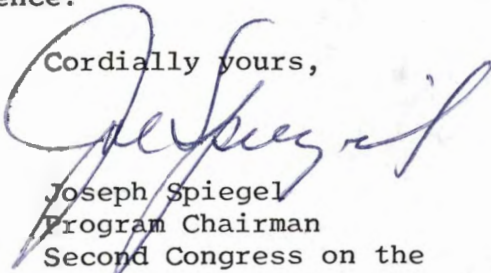 ence.
Cordially yours,
Joe Spiegel
Joseph Spiegel
Program Chairman
Second Congress on the